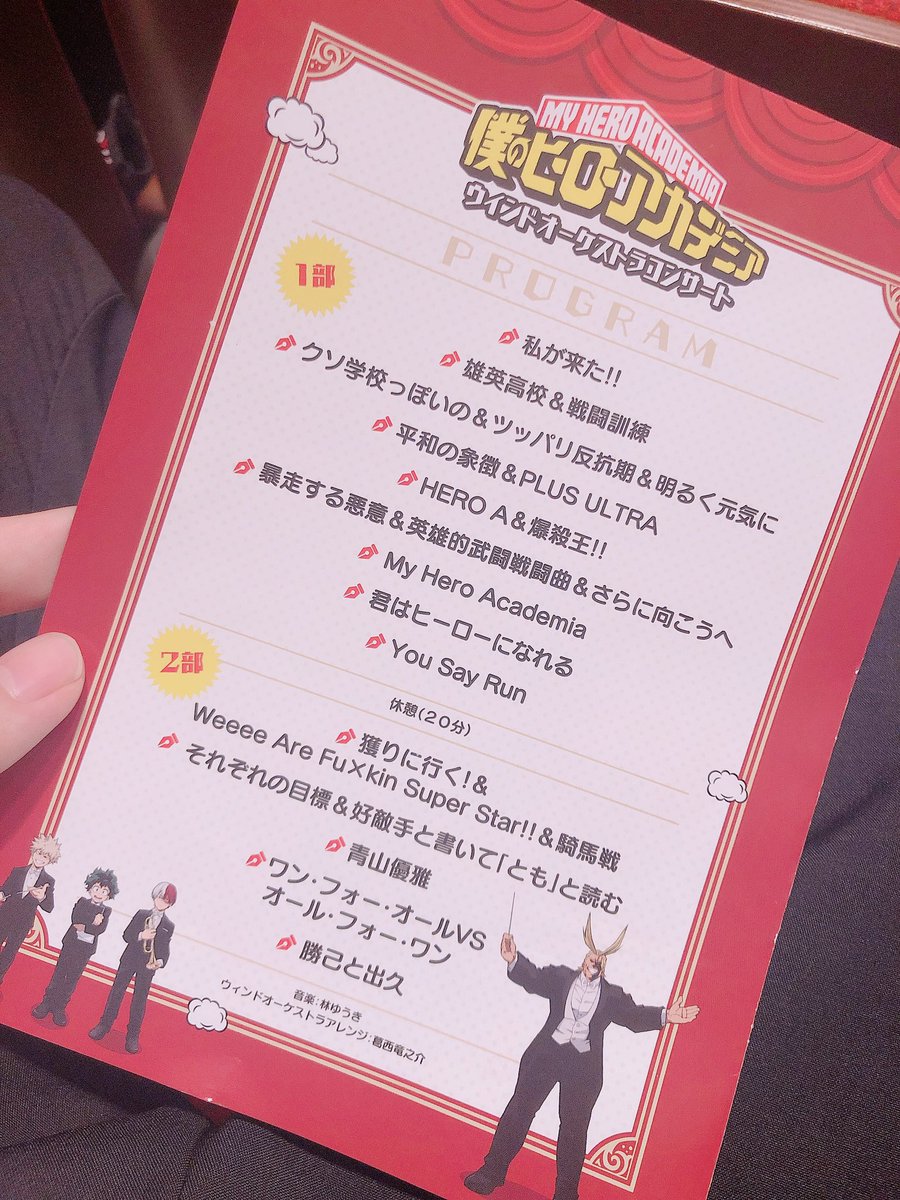 MY HERO ACADEMIA
僕のヒーローアカデミア
ウインドオーケストラコンサート
PROGRAM
1部
私が来た!!
雄英高校&戦闘訓練
クソ学校っぽいの&ツッパリ反抗期&明るく元気に
平和の象徴&PLUS ULTRA
HERO A&爆殺王!!
暴走する悪意&英雄的武闘戦闘曲&さらに向こうへ
My Hero Academia
君はヒーローになれる
You Say Run
休憩(20分)
2部
獲りに行く!&
Weeee Are Fu×kin Super Star!!&騎馬戦
それぞれの目標&好敵手と書いて「とも」と読む
青山優雅
ワン・フォー・オールVS
オール・フォー・ワン
勝己と出久
音楽:林ゆうき
ウィンドオーケストラアレンジ:葛西竜之介